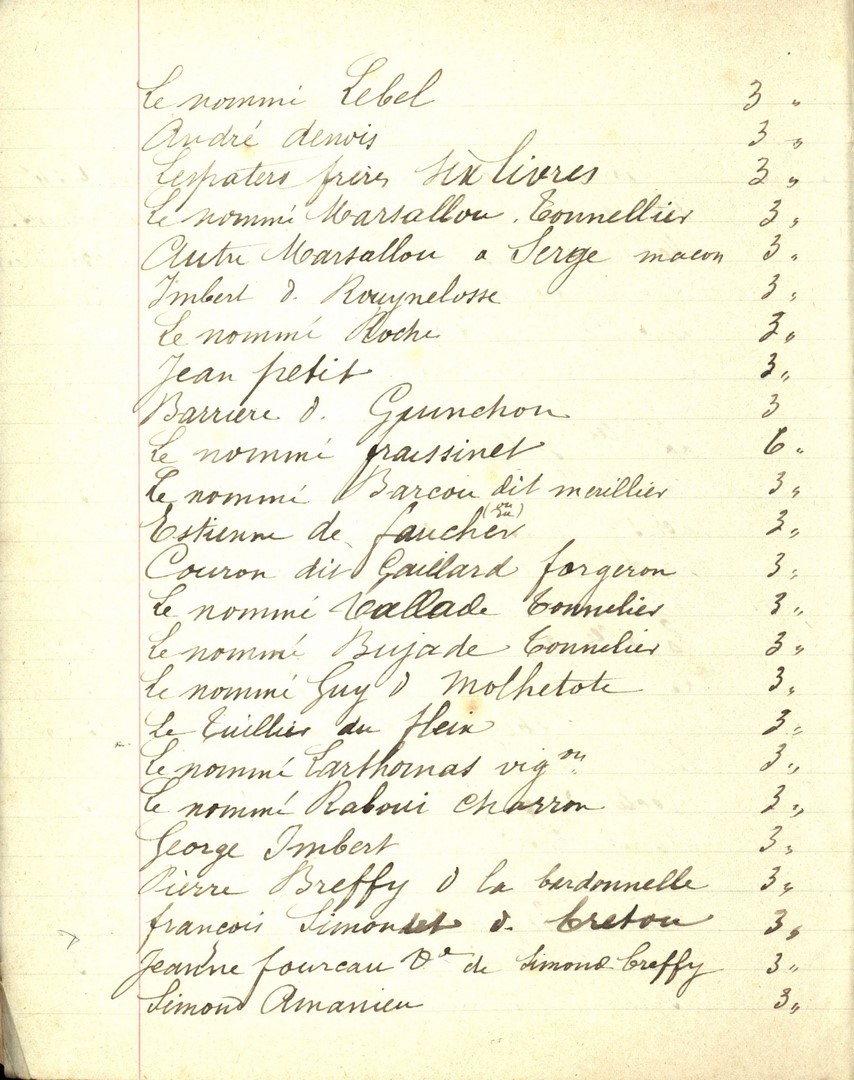 Le nommé Lebel 3 "
André denois 3 "
Lespaters frères six livres 3 "
Le nommé Marsallou Tonnellier 3 "
Autre Marsallou a Serge macon 3 "
Imbert d. Rouynelosse 3 "
Le nommé Roche 3 "
Jean petit 3 "
Barriere d. Guinchou 3
Le nommé fraissinet 6 "
Le nommé Barcou dit merillier 3 "
Estienne de faucher 3 "
Couron dit Gaillard forgeron 3 "
Le nommé Vallade Tonnelier 3 "
Le nommé Bujade Tonnelier 3 "
Le nommé Guy d Molhetote 3 "
Le Tuillier du fleix 3 "
Le nommé Larthomas vig.on 3 "
Le nommé Raboui charron 3 "
George Imbert 3 "
Pierre Breffy d la bardonnelle 3 "
françois Simondet d. bretou 3 "
Jeanne fourcau Ve de Simond breffy 3 "
Simond Amanieu 3 "